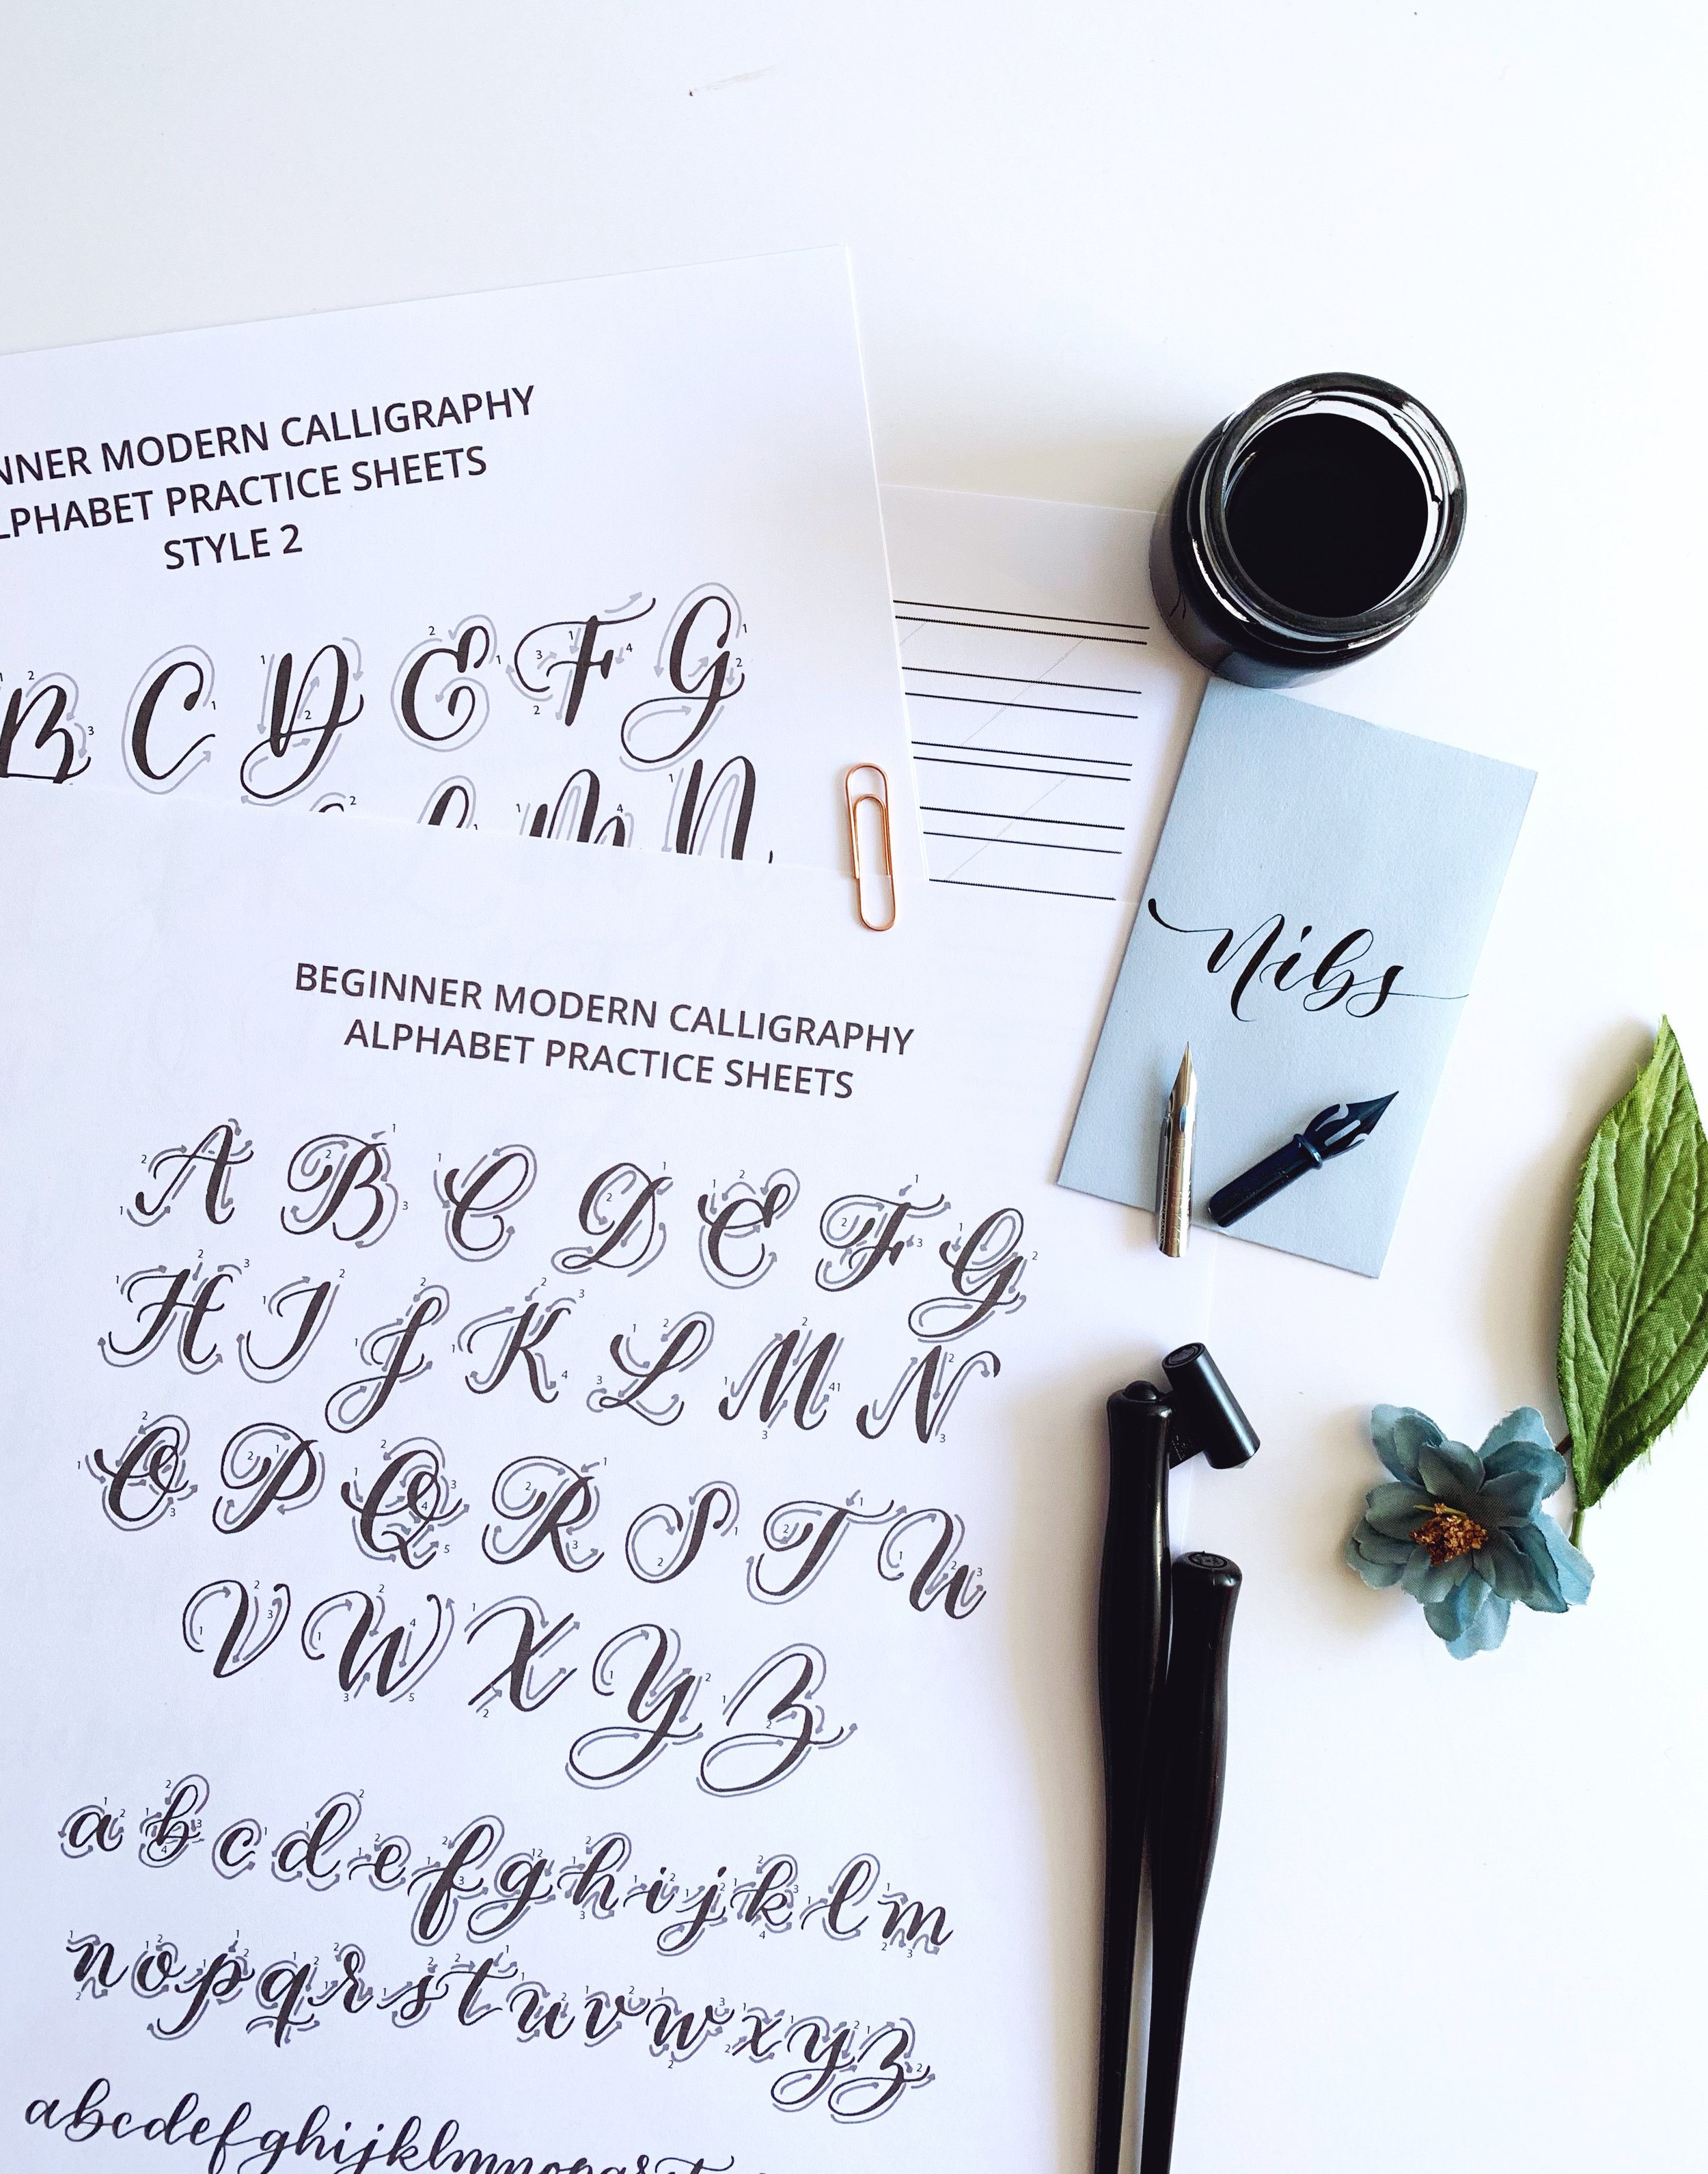 NNER MODERN CALLIGRAPHY
LPHABET PRACTICE SHEETS
STYLE 2
B C D E F G
M N
Nibs
BEGINNER MODERN CALLIGRAPHY
ALPHABET PRACTICE SHEETS
A B C D E F G
H I J K L M N
O P Q R S T U
V W X Y Z
a b c d e f g h i j k l m
n o p q r s t u v w x y z
abcdefghijklmnopqrst